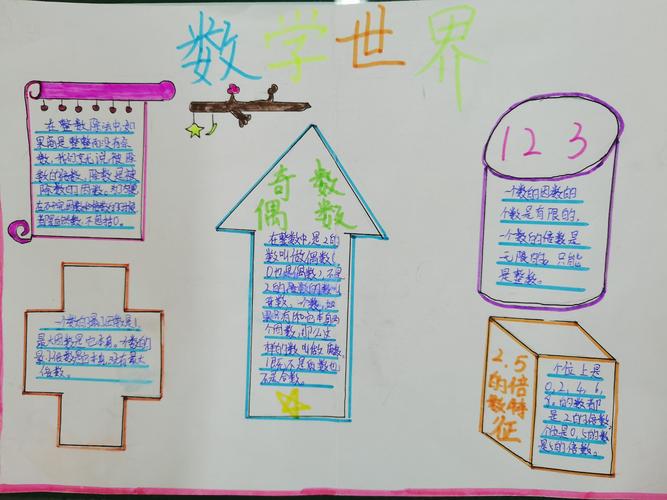 数学世界
在整数除法中,如
果商是整数而没有余
数,我们就说被除
数的倍数,除数是被
除数的因数。
都是自然数,不包括0。
一个数的最小因数是1,
最大因数是它本身。一个数的
最小倍数是它本身,没有最大
倍数。
奇数
偶数
在整数中,是2的
数叫做偶数(
0也是偶数),不是
2的倍数的数叫
奇数。一个数,如
果只有1和它本身两
个因数,那么这
样的数叫做质数,
1既不是质数也
不是合数。
1 2 3
一个数的因数的
个数是有限的,
一个数的倍数是
无限的,只能
是整数。
2.5倍
的数特
征
个位上是
0,2,4,6,
8,的数都
是2的倍数,
个位是0,5的数
是5的倍数。